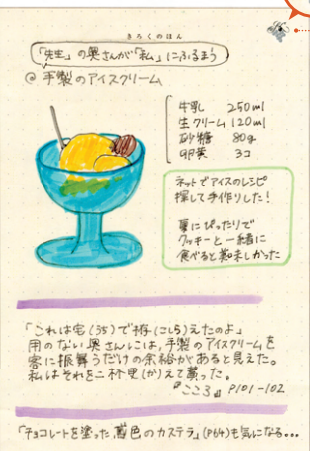 きろくのほん
「先生」の奥さんが「私」にふるまう
◎ 手製のアイスクリーム
牛乳 250ml
生クリーム 120ml
砂糖 80g
卵黄 3コ
ネットでアイスのレシピ
探して手作りした!
夏にぴったりで
クッキーと一緒に
食べると美味しかった
「これは宅(うち)で拵(こしら)えたのよ」
用のない奥さんには、手製のアイスクリームを
客に振舞うだけの余裕があると見えた。
私はそれを二杯更(か)えて貰った。
『こころ』 P101-102
「チョコレートを塗った鳶色のカステラ」(P64)も気になる...